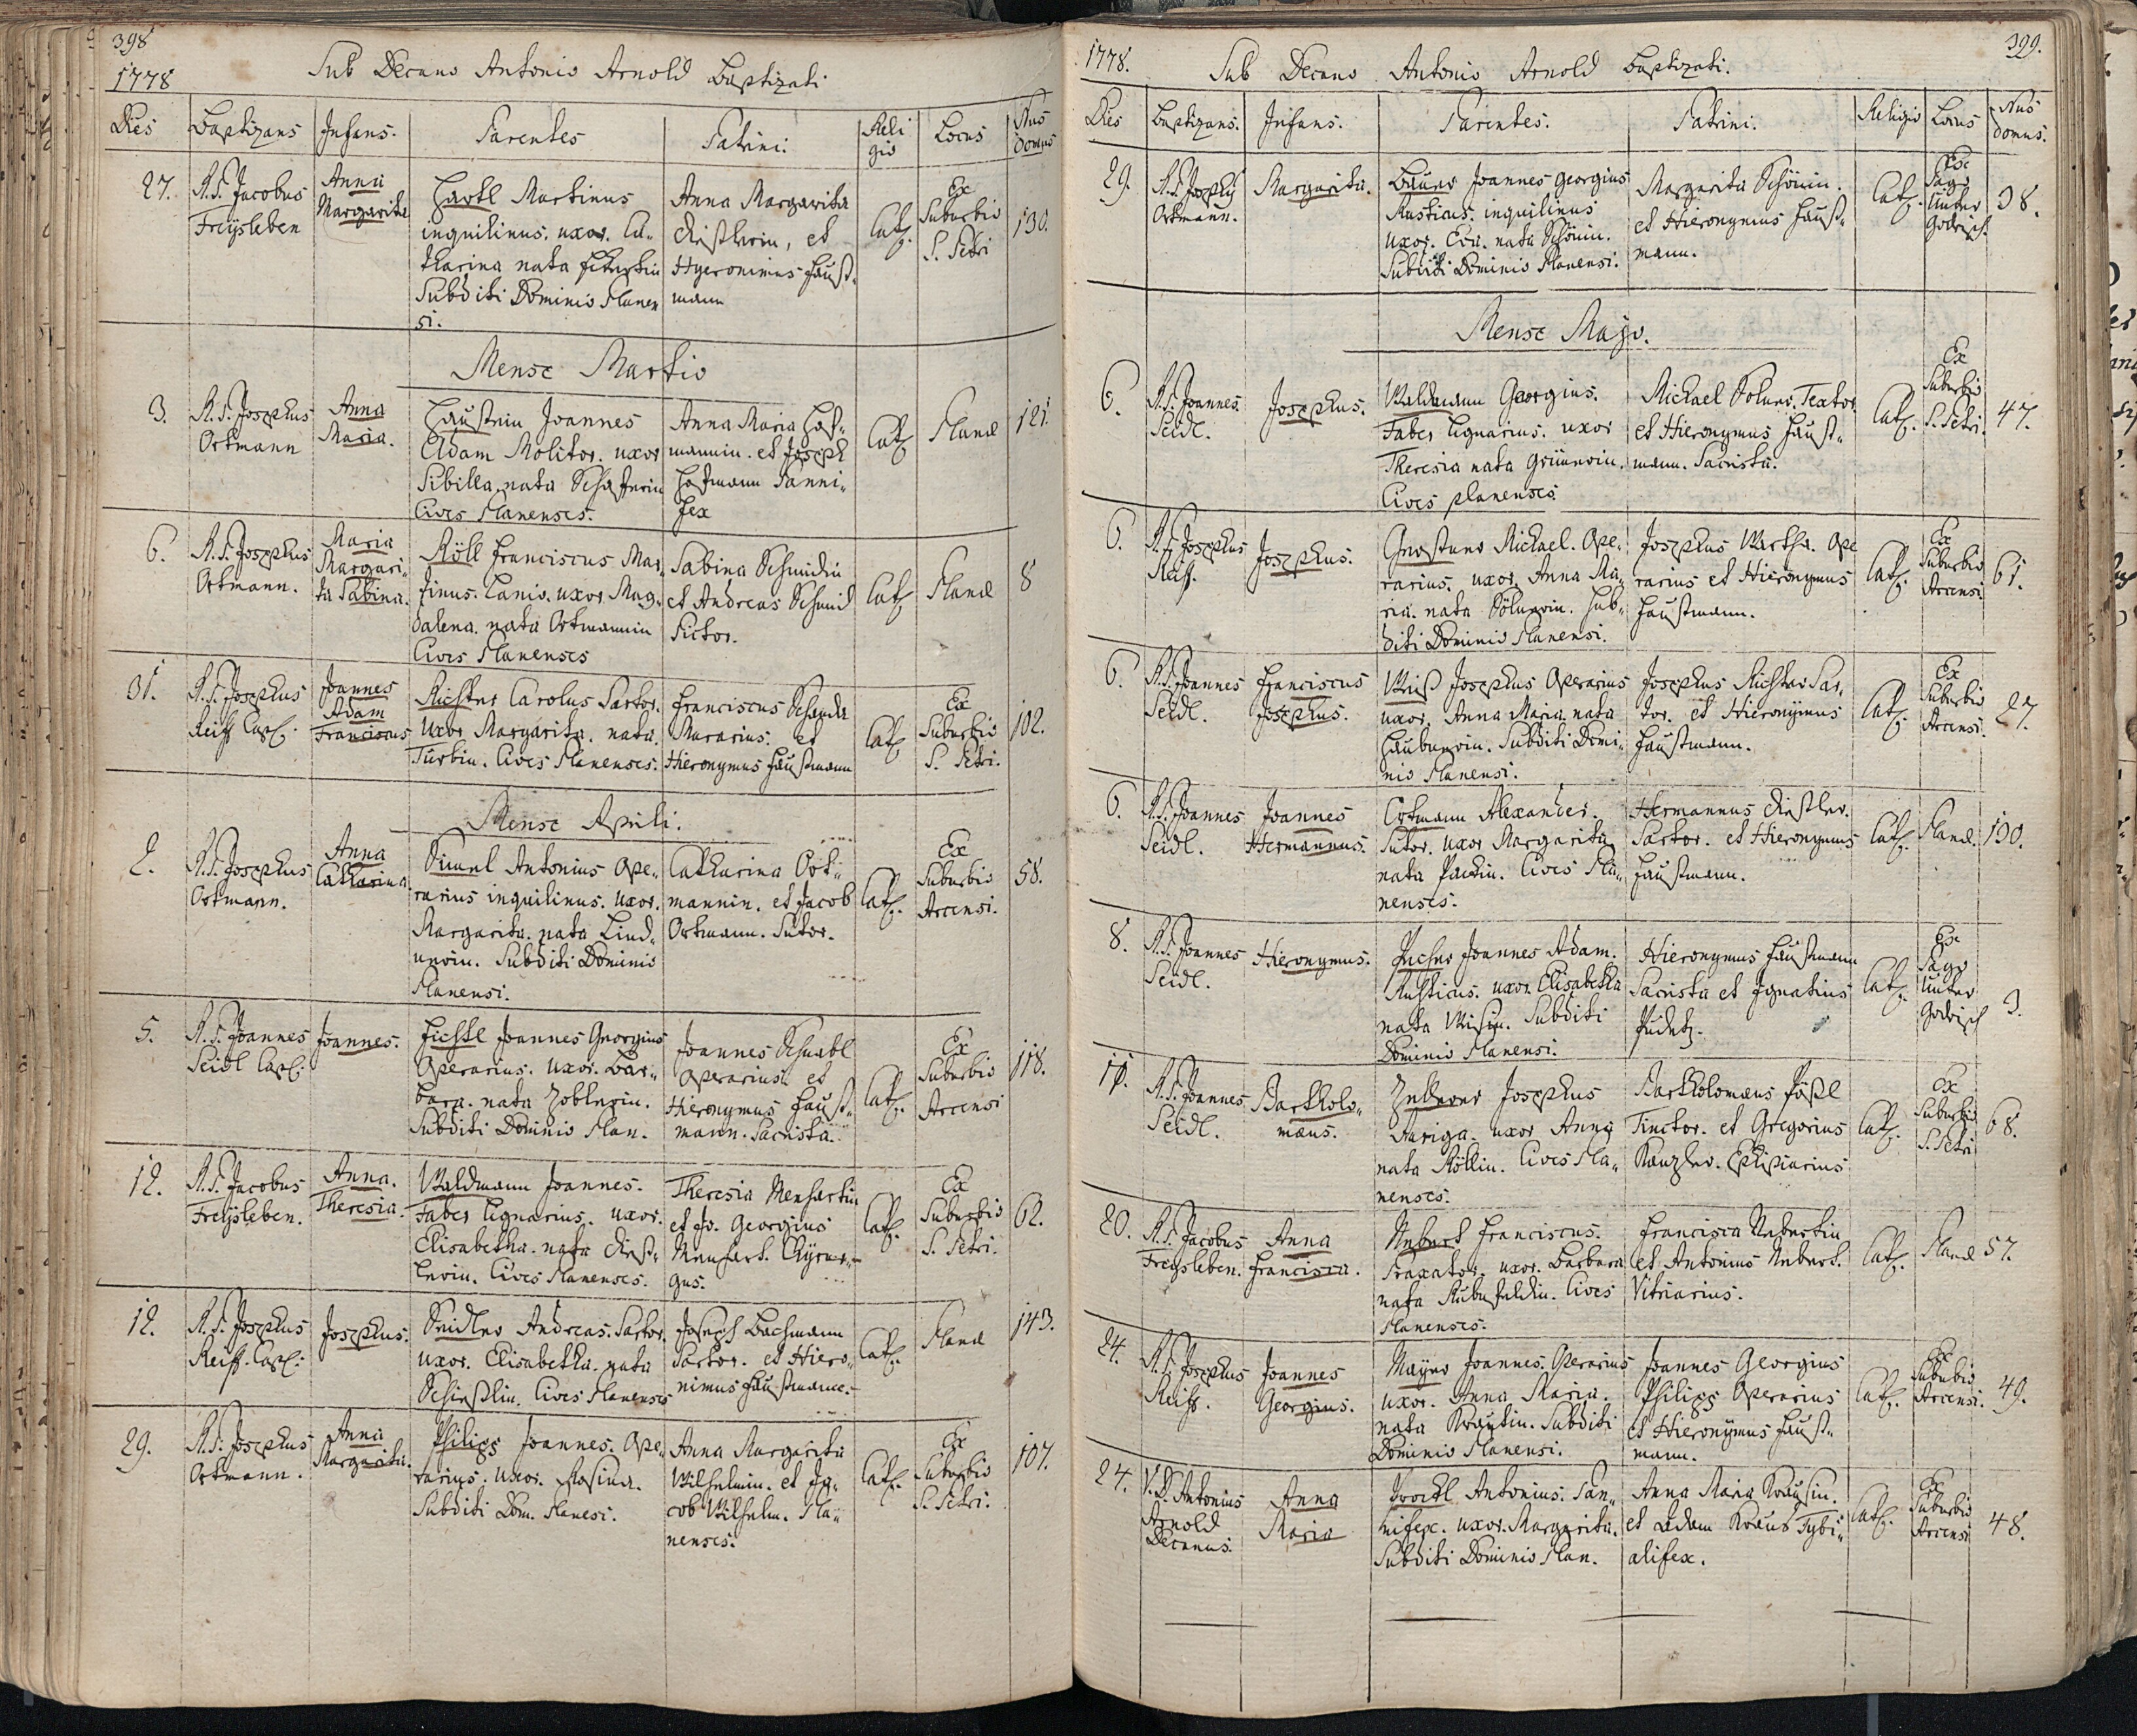 398
1778
Sub Decano Antonio Arnold Baptizati
Dies Baptizans Infans. Parentes Patrini. Reli
gio Locus Nus
domus
27. R.P. Jacobus
Freysleben
Anna
Margarita
Hartl Martinus
inquilinus. uxor. Ca-
tharina nata
Subditi Dominio Planen
si.
Anna Margarita
Distlerin, et
Hyeronimus Haust-
mann
Cath.
Ex
Suburbio
S. Petri
130.
Mense Martio
3. R.P. Josephus
Ortmann
Anna
Maria.
Joannes
Adam Molitor. uxor
Sibilla nata Schafferin
Cives Planenses.
Anna Maria Hof-
mannin. et Joseph
Hofmann Panni-
fex
Cath.
Planae
121.
6. R.P. Josephus
Ortmann.
Maria
Margari-
ta Sabina.
Röll Franciscus Mar-
tinus. Lanio. uxor. Mag-
dalena. nata Ortmannin
Cives Planenses
Sabina Schmidin
et Andreas Schmid
Pictor.
Cath.
Planae
8
31. R.P. Josephus
Reiß Cap.
Joannes
Adam
Franciscus
Richter Carolus Sartor.
Uxor. Margarita. nata.
Türbin. Cives Planenses.
Franciscus
Murarius. et
Hieronymus Haustmann
Cath.
Ex
Suburbio
S. Petri.
102.
Mense Aprili.
2. R.P. Josephus
Ortmann.
Anna
Catharina
Simel Antonius Ope-
rarius inquilinus. Uxor.
Margarita. nata Lind-
nerin. Subditi Dominio
Planensi.
Catharina Ort-
mannin. et Jacob
Ortmann. Sutor.
Cath.
Ex
Suburbio
Arcensi.
58.
5. R.P. Joannes
Seidl Cap.
Joannes.
Fichtl Joannes Georgius
Operarius. Uxor. Bar-
bara. nata Zoblerin.
Subditi Dominio Plan.
Joannes Schnabl
Operarius. et
Hieronymus Haust-
mann. Sacrista.
Cath.
Ex
Suburbio
Arcensi
118.
12. R.P. Jacobus
Freysleben.
Anna.
Theresia.
Waldmann Joannes.
Faber lignarius. uxor.
Elisabetha. nata Dist-
lerin. Cives Planenses.
Theresia Menhartin
et Jo. Georgius
Menhart. Chyrur-
gus.
Cath.
Ex
Suburbio
S. Petri.
62.
12. R.P. Josephus
Reiß. Cap.
Josephus.
Seidler Andreas. Sartor.
uxor. Elisabetha. nata
Schießlin. Cives Planenses
Joseph Bachmann
Sartor. et Hiero-
nimus Haustmann.
Cath.
Planae
143.
29. R.P. Josephus
Ortmann.
Anna
Margarita.
Philipp Joannes. Ope-
rarius. Uxor. Rosina.
Subditi Dom. Planesi.
Anna Margarita
Wilhelmin. et Ja-
cob Wilhelm. Pla-
nenses.
Cath.
Ex
Suburbio
S. Petri.
107.
1778.
Sub Decano Antonio Arnold Baptizati.
399.
Dies Baptizans. Infans. Parentes. Patrini. Religio Locus Nus
domus.
29. R.P. Josephus
Ortmann.
Margarita.
Bauer Joannes Georgius
Rusticus. inquilinus
uxor. Eva. nata Schönin.
Subditi Dominio Planensi.
Margarita Schönin.
et Hieronymus Haust-
mann.
Cath.
Ex
Pago
Unter
Godrisch.
38.
Mense Majo.
6. R.P. Joannes
Seidl.
Josephus.
Waldmann Georgius.
Faber lignarius. uxor
Theresia nata Grünerin.
Cives planenses.
Michael Textor
et Hieronymus Haust-
mann. Sacrista.
Cath.
Ex
Suburbio
S. Petri.
47.
6. R.P. Josephus
Reiß.
Josephus.
Michael. Ope-
rarius. uxor. Anna Ma-
ria. nata Sub-
diti Dominio Planensi.
Josephus Ope
rarius et Hieronymus
Haustmann.
Cath.
Ex
Suburbio
Arcensi
61.
6. R.P. Joannes
Seidl.
Franciscus
Josephus.
Weiß Josephus Operarius
uxor. Anna Maria. nata
Subditi Domi-
nio Planensi.
Josephus Richter Sar-
tor. et Hieronymus
Haustmann.
Cath.
Ex
Suburbio
Arcensi.
27.
6. R.P. Joannes
Seidl.
Joannes
Hermannus.
Ortmann Alexander.
Sutor. uxor Margarita
nata Cives Pla-
nenses.
Hermannus Distler.
Sartor. et Hieronymus
Haustmann.
Cath.
Planae.
130.
8. R.P. Joannes
Seidl.
Hieronymus.
Joannes Adam.
Rusticus. uxor. Elisabetha
nata Subditi
Dominio Planensi.
Hieronymus Haustmann
Sacrista et Ignatius
Cath.
Ex
Pago
Unter
Godrisch
3.
11. R.P. Joannes
Seidl.
Bartholo-
mæus.
Josephus
Auriga. uxor Anna
nata Röllin. Cives Pla-
nenses.
Bartholomæus
Tinctor. et Gregorius
Kanzler. Ephipiarius
Cath.
Ex
Suburbio
S. Petri
68.
20. R.P. Jacobus
Freysleben.
Anna
Francisca.
Nebert Franciscus.
Praxator. uxor. Barbara
nata Cives
Planenses.
Francisca Nebertin
et Antonius Nebert.
Vitriarius.
Cath.
Planae
57.
24. R.P. Josephus
Reiß.
Joannes
Georgius.
Mayer Joannes. Operarius
uxor. Anna Maria.
nata Krautin. Subditi
Dominio Planensi.
Joannes Georgius
Philipp Operarius
et Hieronymus Haust-
mann.
Cath.
Ex
Suburbio
Arcensi.
49.
24. V.D. Antonius
Arnold
Decanus.
Anna
Maria
Antonius. Pan-
nifex. uxor. Margarita.
Subditi Dominio Plan.
Anna Maria Krausin.
et Adam Kraus Tybi-
alifex.
Cath.
Ex
Suburbio
Arcensi
48.